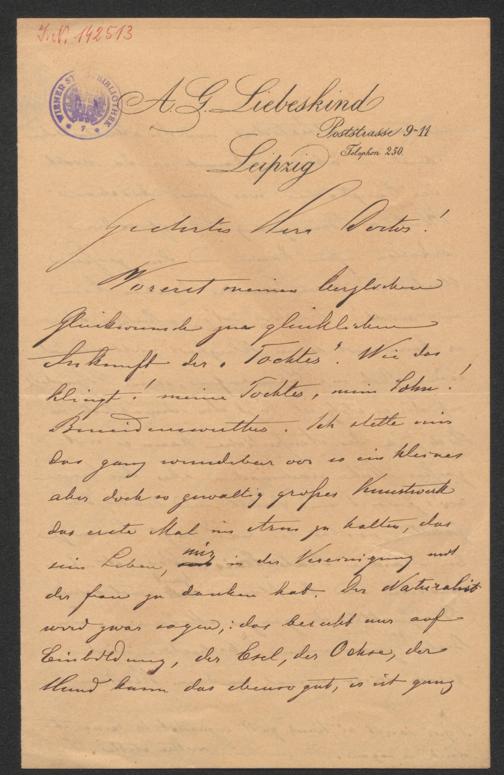 J.N. 142513
WIENER ST BIBLIOTHEK
A. G. Liebeskind
Poststrasse 9-11
Telephon 250.
Leipzig
Geehrter Herr Doctor!
Vorerst meinen herzlichen
Glückwunsch zur glücklichen
Ankunft der „Tochter“. Wie das
klingt! meine Tochter, mein Sohn!
Beneidenswerther. Ich stelle mir
das ganz wunderbar vor so ein kleines
aber doch so gewaltig großes Kunstwerk
das erste Mal im Arm zu halten, das
sein Leben, mir in der Vereinigung mit
der Frau zu danken hat. Der Naturalist
wird zwar sagen: das beruht nur auf
Einbildung, der Esel, der Ochse, der
Hund kann das ebenso gut, es ist ganz